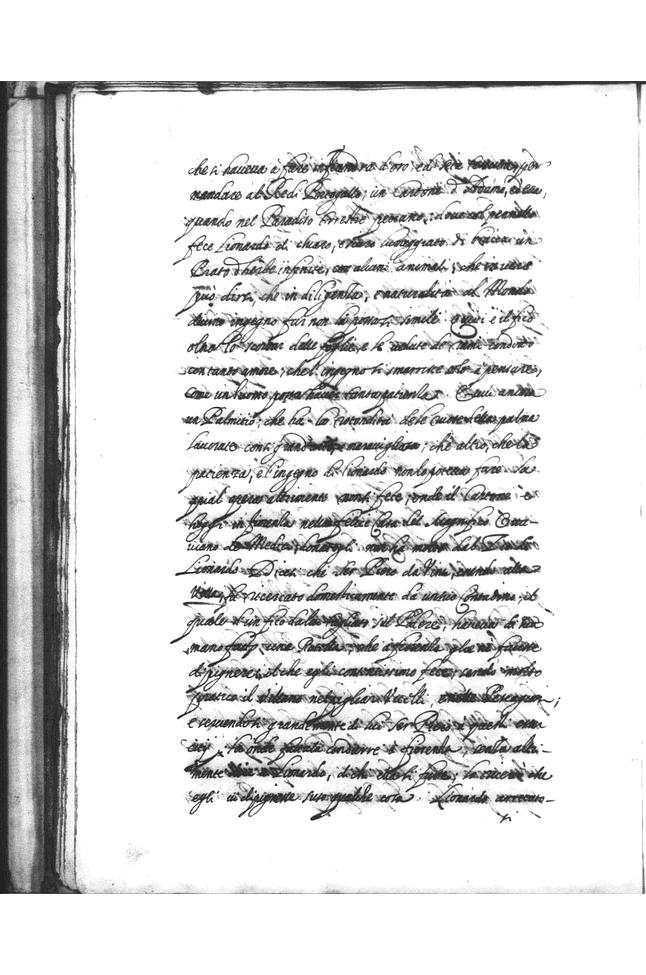 che si haveva à fare in fiandra d'oro, e di seta tessuta, per
mandare al Re di Portogallo, un Cartone d'Adamo, et Eva,
quando nel Paradiso terrestre peccano: dove col pennello
fece Lionardo di chiaro, e scuro lumeggiato di biacca un
Prato d'herbe infinite, con alcuni animali, che in vero
può dirsi, che in diligenza, e naturalità al Mondo
divino ingegno far non la possa sì simile. Quivi è il fico
oltre lo scortar delle foglie, e le vedute de' rami condotto
con tanto amore, che l'ingegno si smarrisce solo à pensare,
come un huomo possa havere tanta patienza. Evvi ancora
un Palmizio, che ha la rotondità delle ruote della palma
lavorate con sì grande arte, e maravigliosa, che altro, che la
pacienza, e l'ingegno di Lionardo non lo poteva fare. La
quale opera altrimente non si fece, onde il Cartone è
hoggi in fiorenza nella felice Casa del Magnifico Otta-
viano de Medici, donatogli non ha molto dal Zio di
Lionardo. Dicesi che Ser Piero da Vinci, essendo alla
Villa, fu ricercato domesticamente da un suo Contadino, il
quale d'un fico da lui tagliato sul Podere, haveva di sua
mano fatto una Rotella, che à fiorenza gliene facesse
dipignere, il che egli contentissimo fece, sendo molto
pratico il villano nel pigliar Uccelli, e nelle Pescagioni;
e servendosi grandemente di lui Ser Piero à questi eser-
cizij. La onde fattala condurre à fiorenza, senza altri-
mente dire à Lionardo, di chi ella si fusse, lo ricercò che
egli vi dipignesse suso qualche cosa. Lionardo arrecato-
si